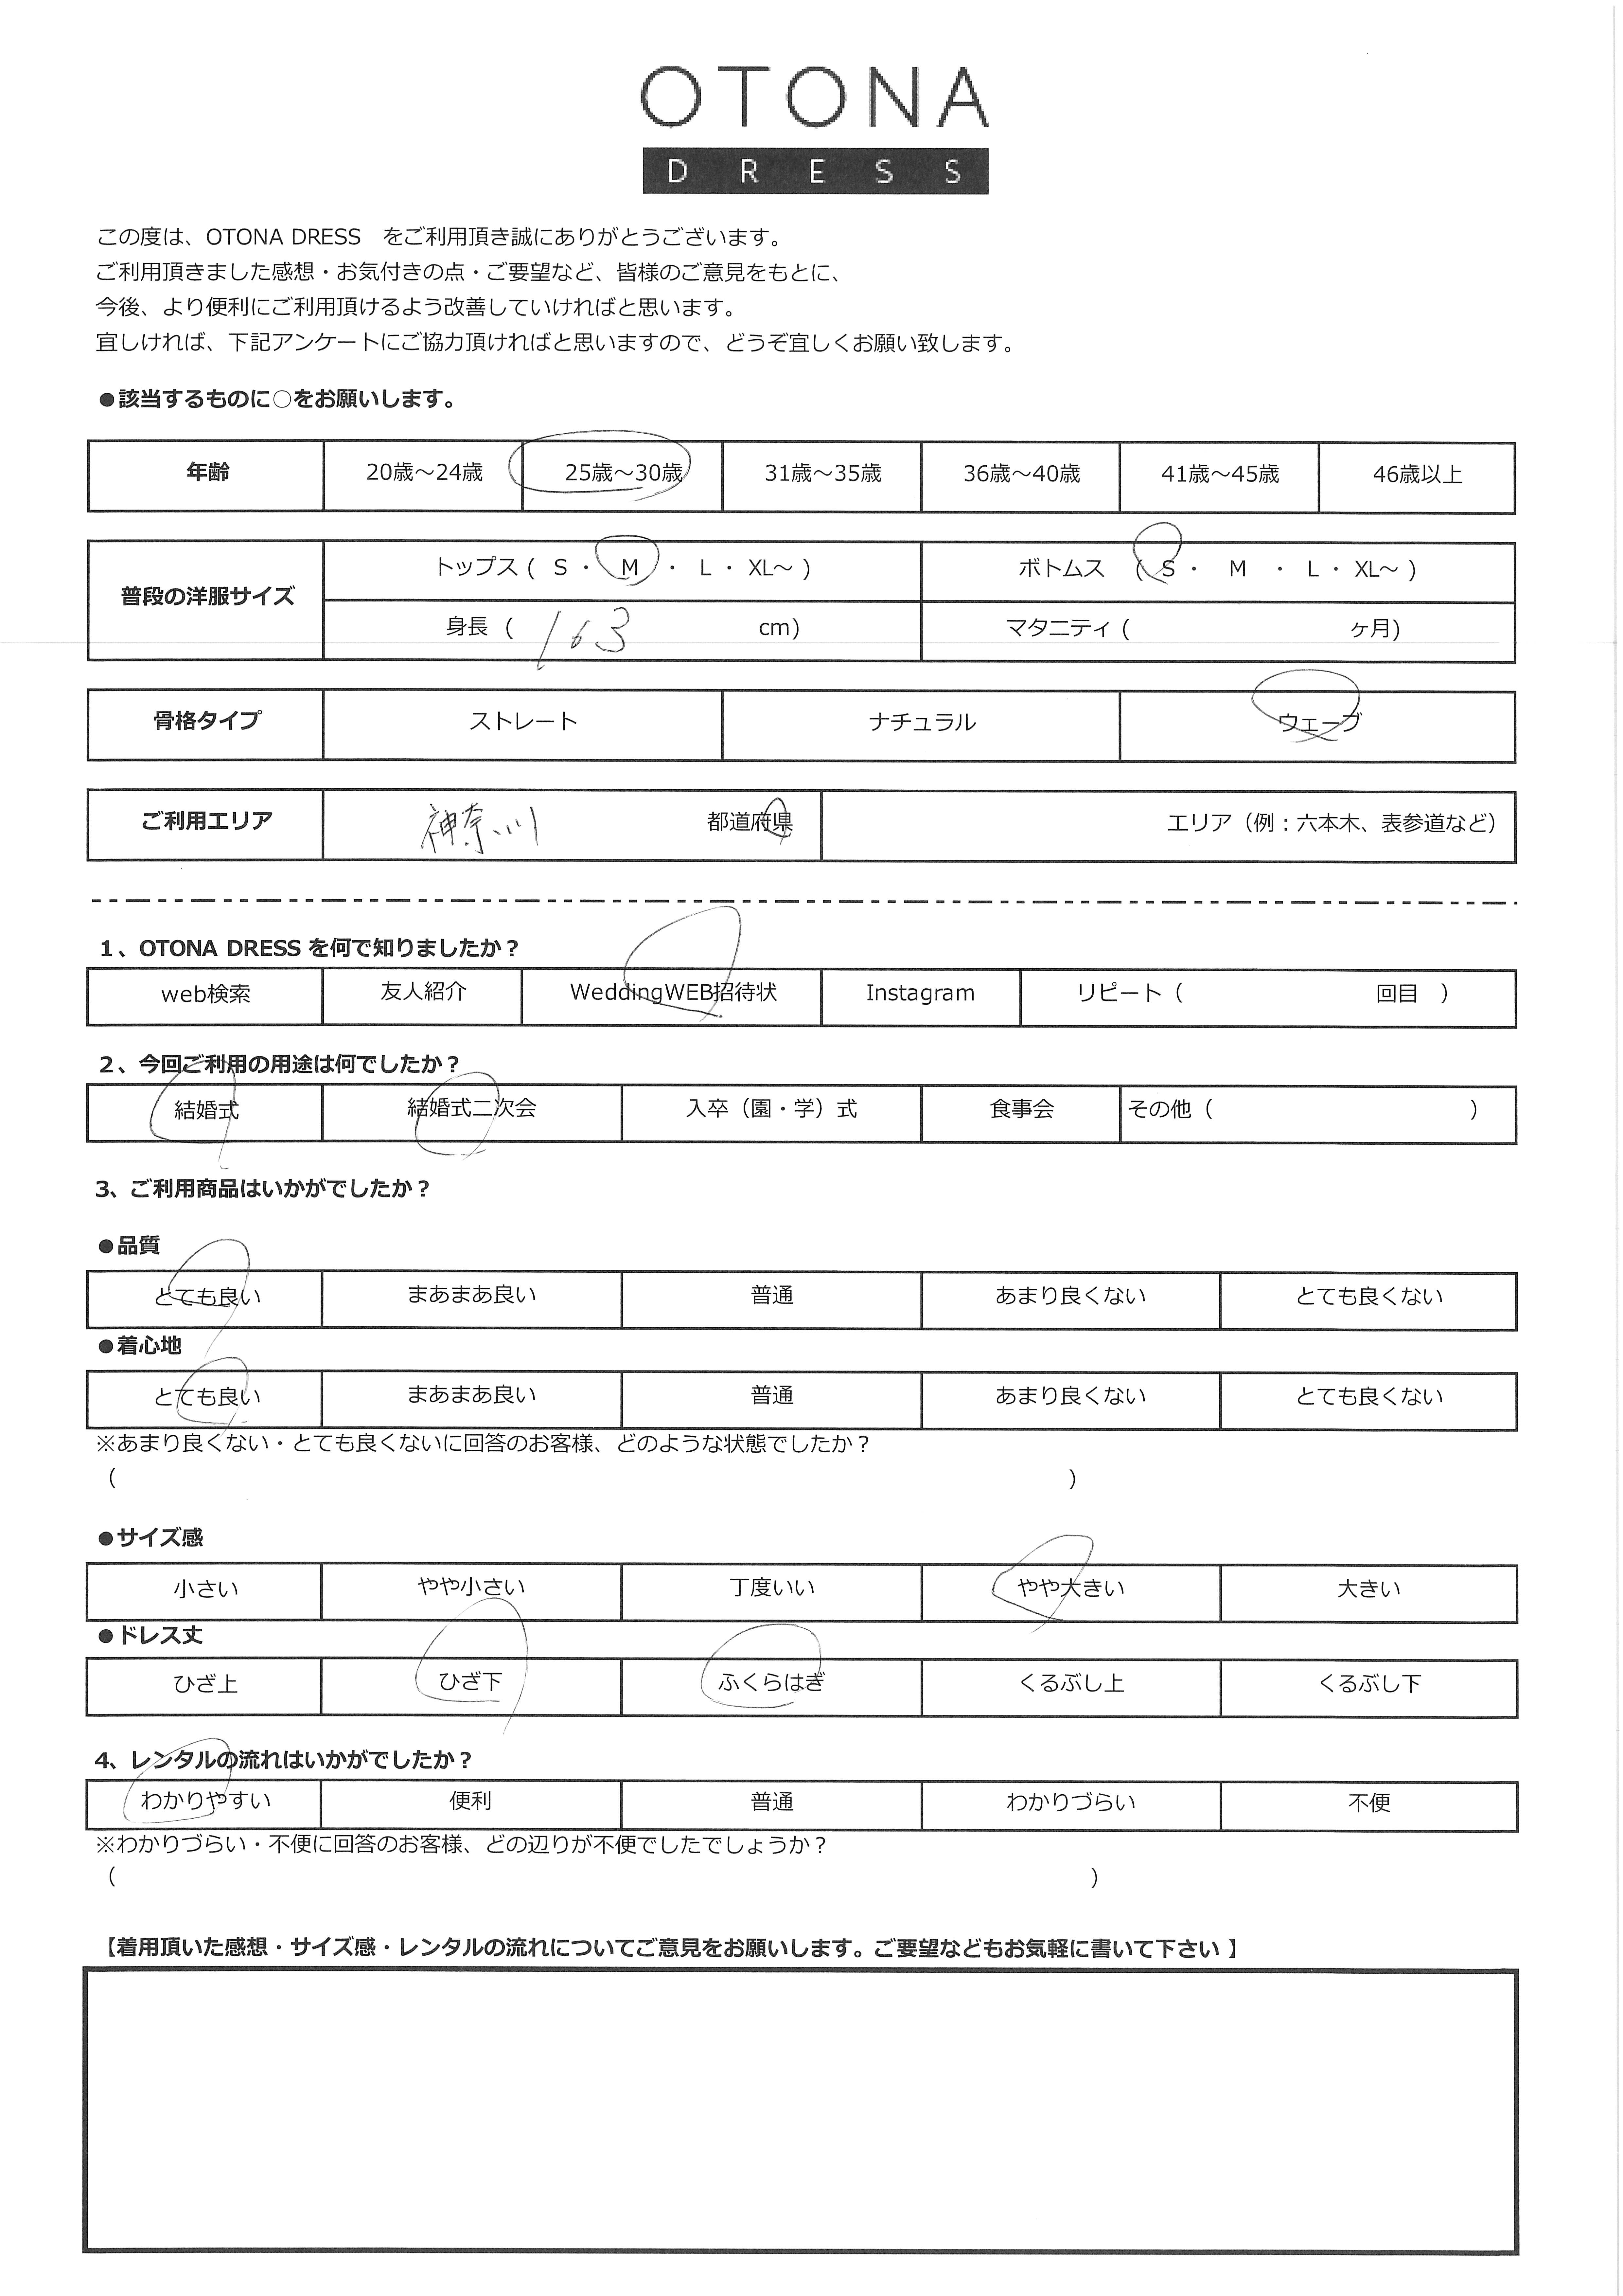 OTONA
DRESS
この度は、OTONA DRESS をご利用頂き誠にありがとうございます。
ご利用頂きました感想・お気付きの点・ご要望など、皆様のご意見をもとに、
今後、より便利にご利用頂けるよう改善していければと思います。
宜しければ、下記アンケートにご協力頂ければと思いますので、どうぞ宜しくお願い致します。
●該当するものに○をお願いします。
年齢 20歳～24歳 25歳～30歳 31歳～35歳 36歳～40歳 41歳～45歳 46歳以上
普段の洋服サイズ トップス ( S ・ M ・ L ・ XL～ ) ボトムス ( S ・ M ・ L ・ XL～ )
身長 ( 163 cm) マタニティ ( ヶ月)
骨格タイプ ストレート ナチュラル ウェーブ
ご利用エリア 神奈川 都道府県 エリア（例：六本木、表参道など）
1、OTONA DRESS を何で知りましたか？
web検索 友人紹介 WeddingWEB招待状 Instagram リピート（ 回目 ）
2、今回ご利用の用途は何でしたか？
結婚式 結婚式二次会 入卒（園・学）式 食事会 その他（ ）
3、ご利用商品はいかがでしたか？
●品質
とても良い まあまあ良い 普通 あまり良くない とても良くない
●着心地
とても良い まあまあ良い 普通 あまり良くない とても良くない
※あまり良くない・とても良くないに回答のお客様、どのような状態でしたか？
（ ）
●サイズ感
小さい やや小さい 丁度いい やや大きい 大きい
●ドレス丈
ひざ上 ひざ下 ふくらはぎ くるぶし上 くるぶし下
4、レンタルの流れはいかがでしたか？
わかりやすい 便利 普通 わかりづらい 不便
※わかりづらい・不便に回答のお客様、どの辺りが不便でしたでしょうか？
（ ）
【着用頂いた感想・サイズ感・レンタルの流れについてご意見をお願いします。ご要望などもお気軽に書いて下さい 】